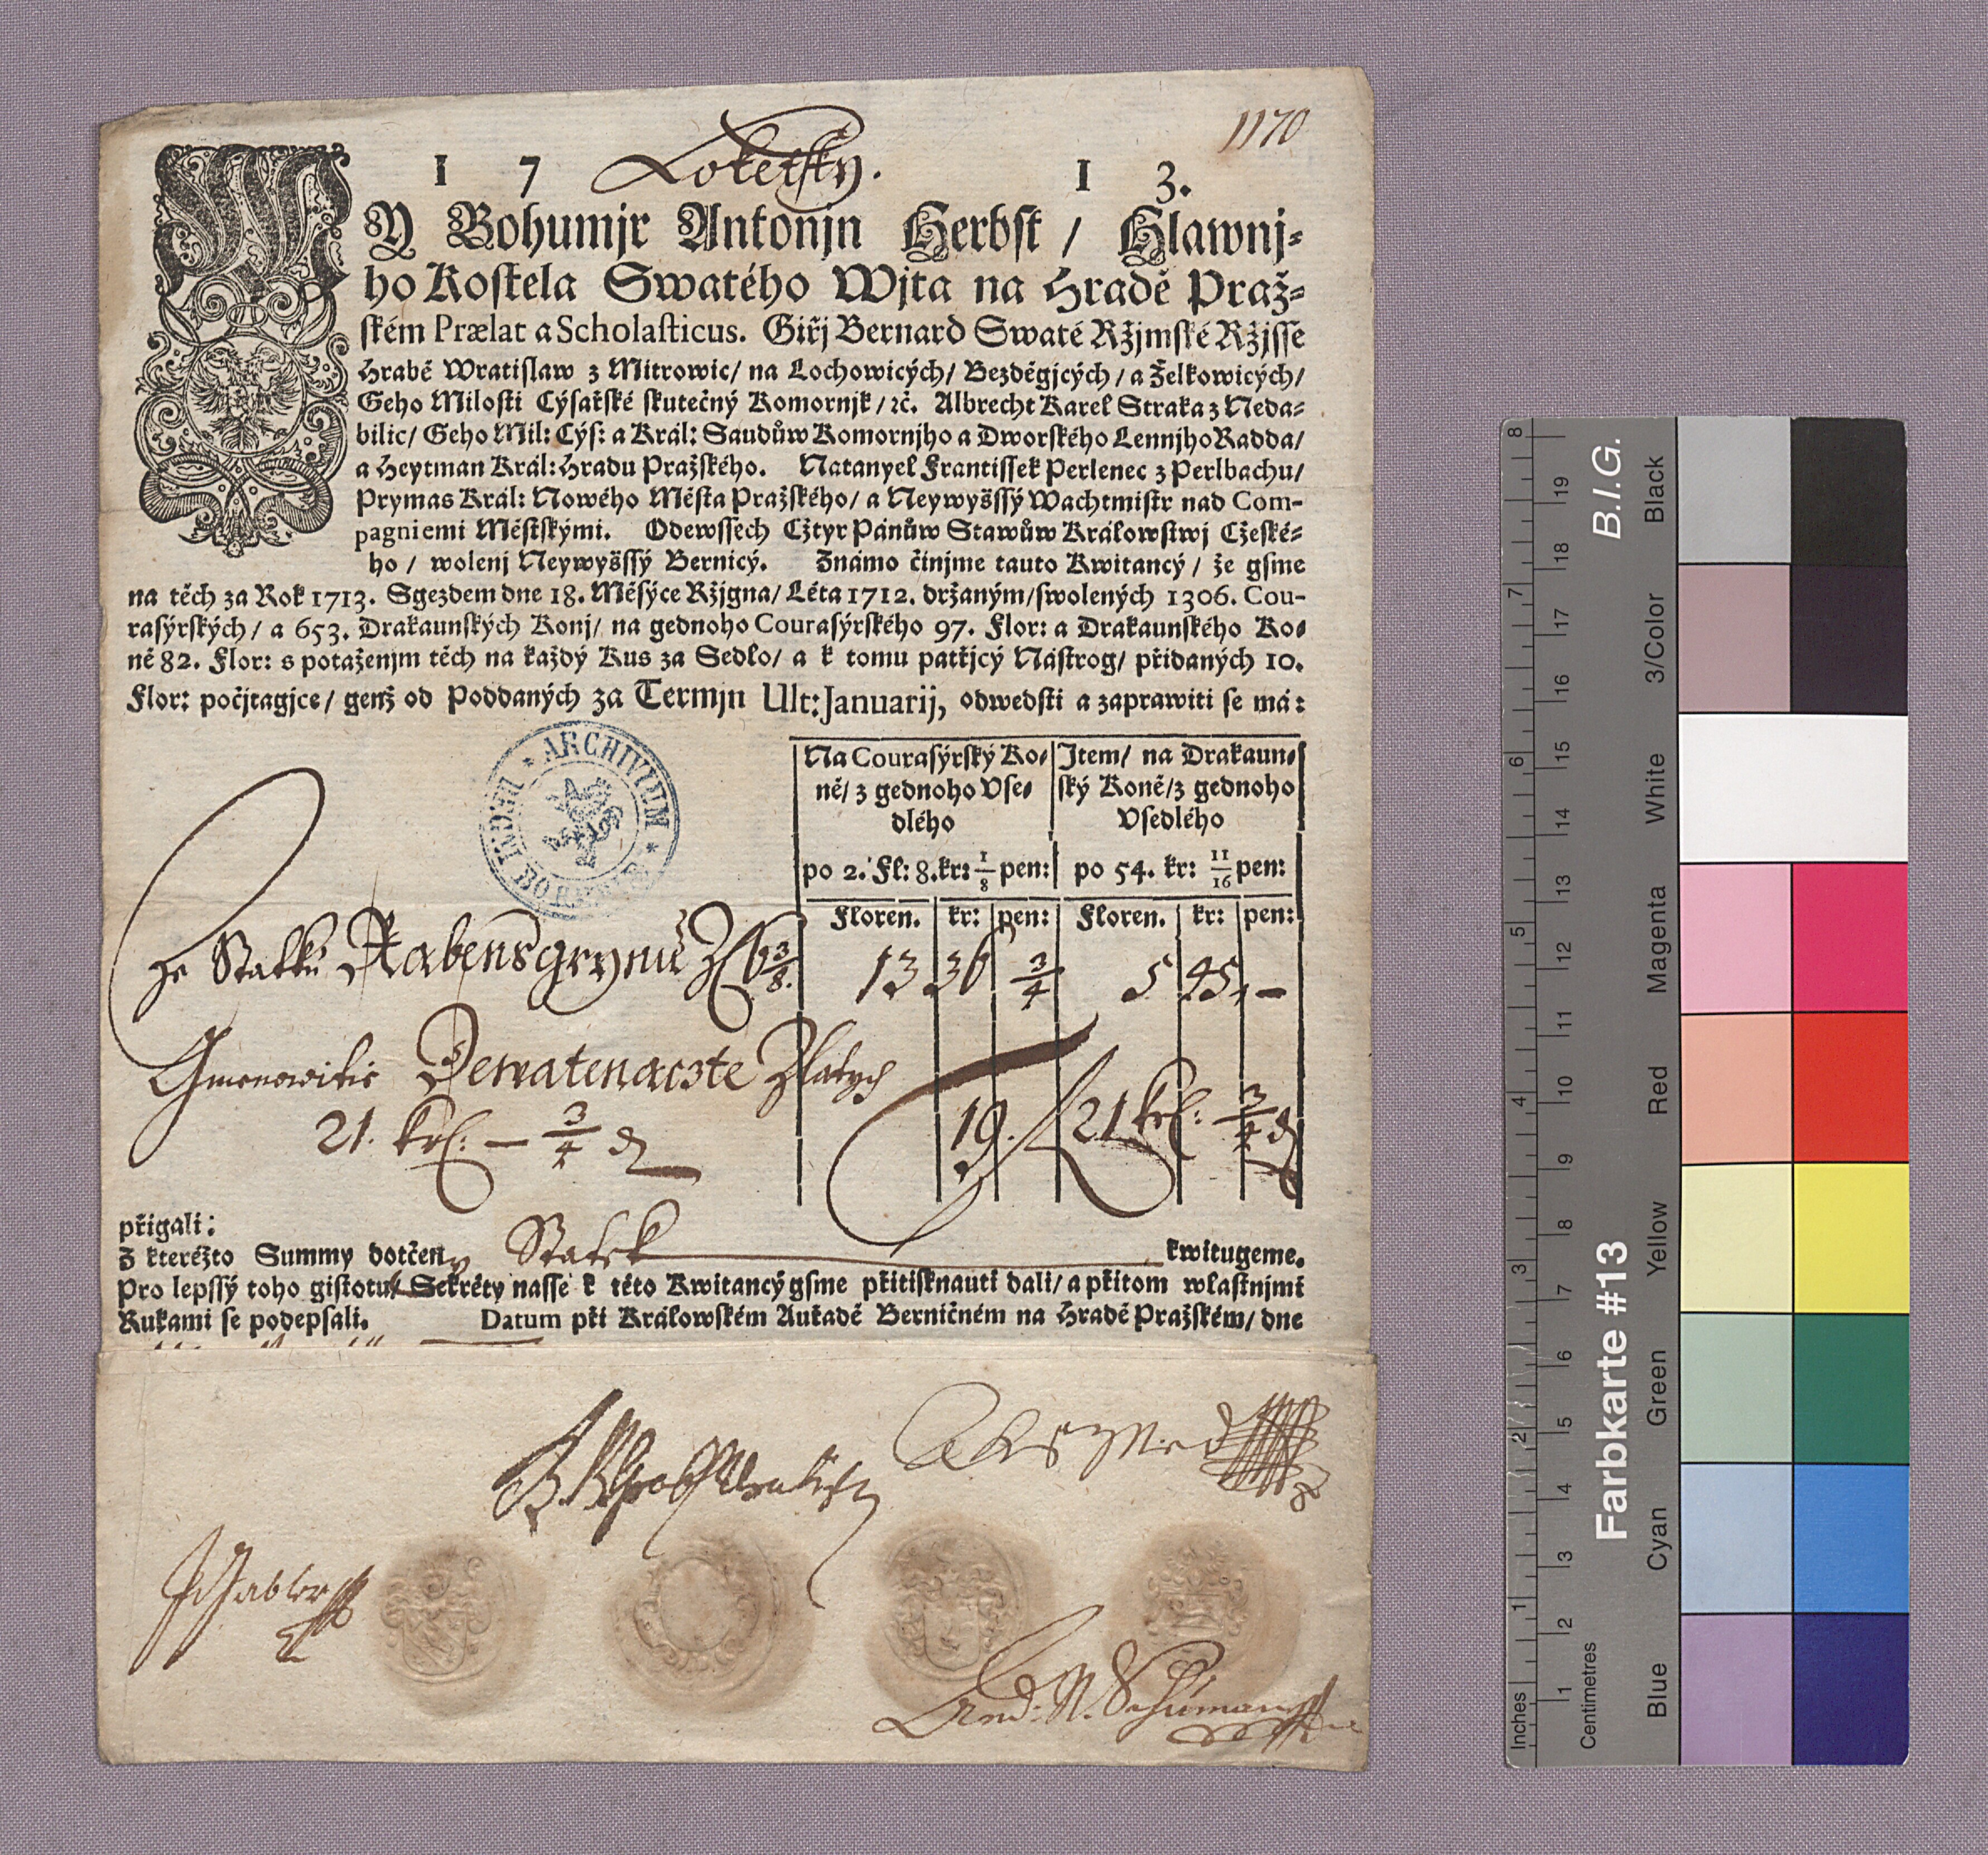 1170
1 7 Loketsky. 1 3.
MY Bohumjr Antonjn Herbst / Hlawnj=
ho Kostela Swatého Wjta na Hradě Praž=
ském Prælat a Scholasticus. Giřj Bernard Swaté Ržjmské Ržjsse
Hrabě Wratislaw z Mitrowic/ na Lochowicých/ Bezděgjcých/ a Želkowicých/
Geho Milosti Cýsařské skutečný Komornjk/ ꝛč. Albrecht Karel Straka z Neda=
bilic/ Geho Mil: Cýs: a Král: Saudůw Komornjho a Dworského Lennjho Radda/
a Heytman Král: Hradu Pražského. Natanyel Frantissek Perlenec z Perlbachu/
Prymas Král: Nowého Města Pražského/ a Neywyšssý Wachtmistr nad Com-
pagniemi Městskými. Odewssech Cžtyr Pánůw Stawůw Králowstwj Cžeské=
ho / wolenj Neywyšssý Bernicý. Známo činjme tauto Kwitancý / že gsme
na těch za Rok 1713. Sgezdem dne 18. Měsýce Ržjgna/ Léta 1712. držaným/ swolených 1306. Cou-
rasýrských/ a 653. Drakaunských Konj/ na gednoho Courasýrského 97. Flor: a Drakaunského Ko=
ně 82. Flor: s potaženjm těch na každý Kus za Sedlo/ a k tomu patřjcý Nástrog/ přidaných 10.
Flor: počjtagjce/ genž od Poddaných za Termjn Ult: Januarij, odwedsti a zaprawiti se má:
* ARCHIVIUM * REGNI BOHEMIAE
Na Courasýrský Ko= Jtem/ na Drakaun=
ně/ z gednoho Vse= ský Koně/ z gednoho
dlého Vsedlého
po 2. Fl: 8. kr: 1/8 pen: po 54. kr: 11/16 pen:
Floren. kr: pen: Floren. kr: pen:
Ze Statku Rabensgrynu 6 3/8. 13 36 3/4 5 45 –
Gmenowitie Dewatenaczte Zlatych
21. kr: – 3/4 19. 21 kr: 3/4
přigali:
Z kteréžto Summy dotčeny Statek kwitugeme.
Pro lepssý toho gistotu Sekréty nasse k této Kwitancý gsme přitisknauti dali/ a přitom wlastnjmi
Rukami se podepsali. Datum při Králowském Auřadě Berničném na Hradě Pražském/ dne
Schüman
Inches
Centimetres
1 2 3 4 5 6 7 8
1 2 3 4 5 6 7 8 9 10 11 12 13 14 15 16 17 18 19
Farbkarte #13
B.I.G.
Blue
Cyan
Green
Yellow
Red
Magenta
White
3/Color
Black